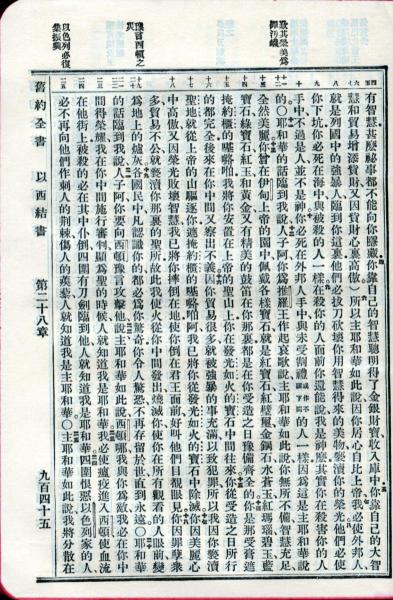 有智慧、甚麼祕事都不能向你隱藏、你靠自己的智慧聰明得了金銀財寶收入庫中、你靠自己的大智
慧和貿易增添貲財、又因貲財心裏高傲、所以主耶和華如此說、因你居心自比上帝、我必使外邦人
就是列國中的強暴人臨到你這裏、他們必拔刀砍壞你用智慧得來的美物、褻瀆你的榮光、他們必使
你下坑、你必死在海中與被殺的人一樣、在殺你的人面前你還能說我是神麼、其實你在殺害你的人
手中不過是人並不是神、你必死在外邦人手中、與未受割禮的人一樣、因為這是主耶和華說
的○耶和華的話臨到我說、人子阿、你為推羅王作起哀歌、說主耶和華如此說、你無所不備、智慧充足
全然美麗、你曾在伊甸上帝的園中、佩戴各樣寶石、就是紅寶石、紅璧璽、金鋼石、水蒼玉、紅瑪瑙、碧玉、藍
寶石、綠寶石、紅玉、和黃金、又有精美的鼓笛在你那裏、都是在你受造之日豫備齊全的、你是那受膏遮
掩約櫃的、我將你安置在上帝的聖山上、你在發光如火的寶石中間往來、你從受造之日所行
的都完全、後來在你中間又察出不義、因你貿易很多、就被強暴的事充滿、以致犯罪、所以我因你褻瀆
聖地、就從上帝的山驅逐你、遮掩約櫃的阿、我已將你從發光如火的寶石中除滅、你因美麗心
中高傲、又因榮光敗壞智慧、我已將你摔倒在地、使你倒在君王面前、好叫他們目覩眼見、你因罪孽衆
多、貿易不公、就褻瀆你那裏的聖所、故此我使火從你中間發出、燒滅你、使你在所有觀看的人眼前變
為地上的爐灰、各國民中凡認識你的、都必為你驚奇、你令人驚恐、不再存留於世、直到永遠○耶和華
的話臨到我說、人子阿、你要向西頓豫言攻擊他、說主耶和華如此說、西頓哪、我與你為敵、我必在你中
間得榮耀、我在你中間施行審判、顯為聖的時候、人就知道我是耶和華、我必使瘟疫進入西頓、使血流
在他街上、被殺的必在其中仆倒、四圍有刀劍臨到他、人就知道我是耶和華、四圍恨惡以色列家的人、
必不再向他們作刺人的荊棘、傷人的蒺藜、人就知道我是主耶和華○主耶和華如此說、我將分散在
舊約全書 以西結書 第二十八章 九百四十五